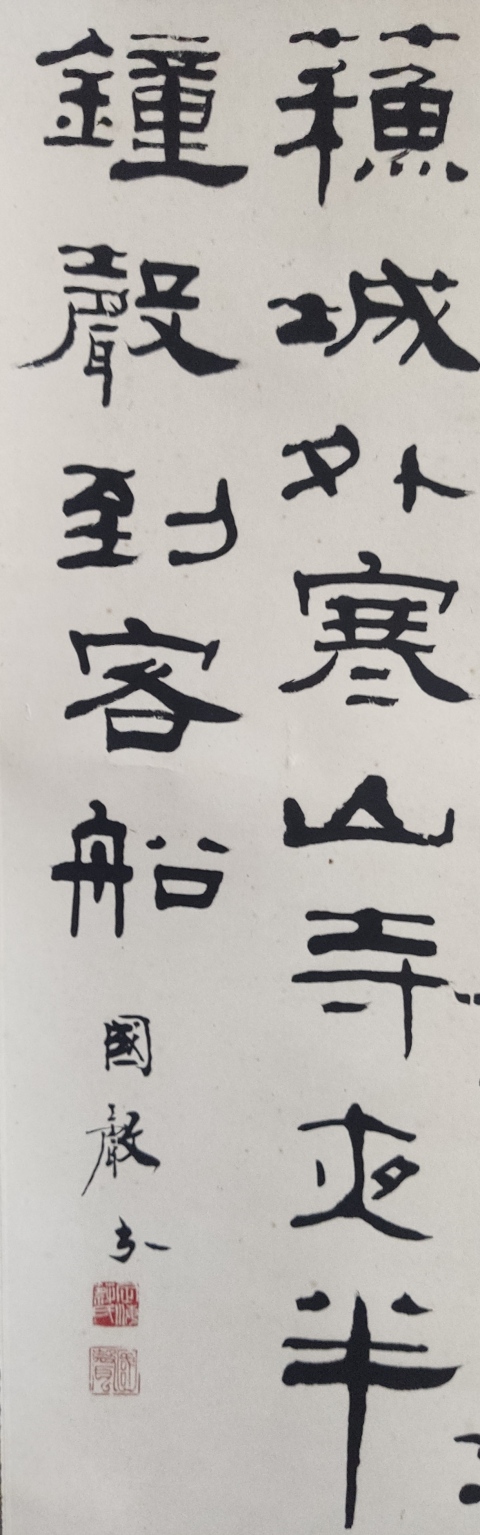 蘓城外寒山寺夜半
鐘聲到客船
國聲